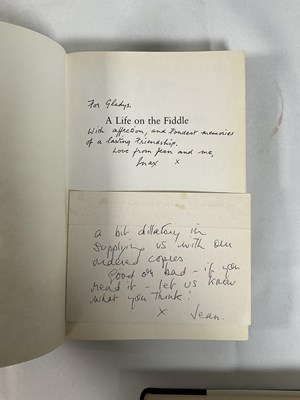 For Gladys.
A Life on the Fiddle
With affection, and fondest memories
of a lasting friendship.
Love from Jean and me,
Max x
a bit dillatory in
supplying us with our
ordered copies
Good or bad - if you
read it - let us know
what you think!
x Jean.